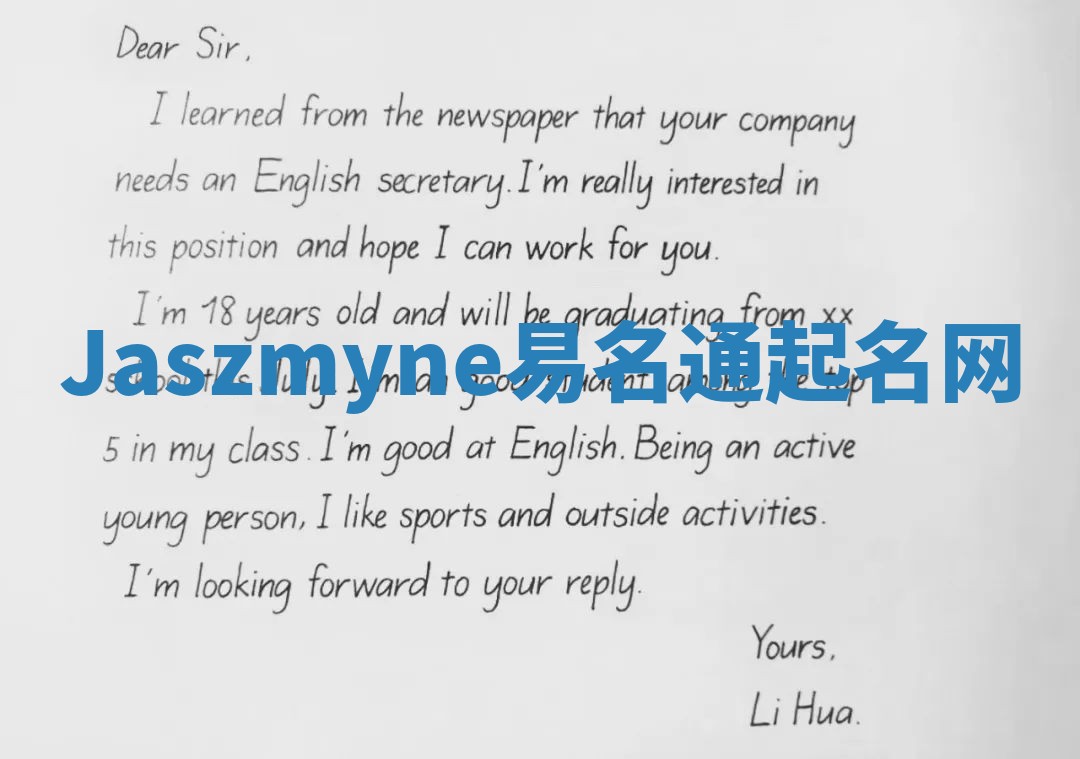 Dear Sir,
I learned from the newspaper that your company
needs an English secretary. I'm really interested in
this position and hope I can work for you.
I'm 18 years old and will be graduating from xx
Jaszmyne易名通起名网
school this July. I'm a good student among the top
5 in my class. I'm good at English. Being an active
young person, I like sports and outside activities.
I'm looking forward to your reply.
Yours,
Li Hua.